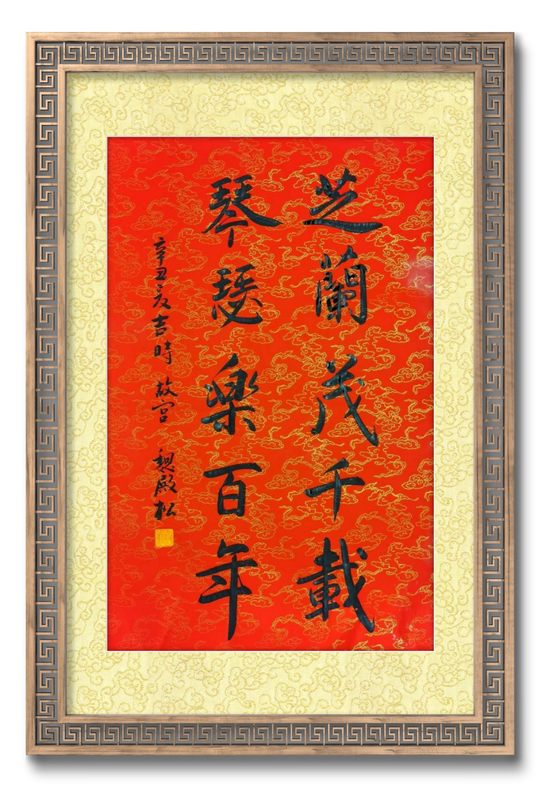 芝蘭茂千載
琴瑟樂百年
辛丑之吉時故宮 魏殿松